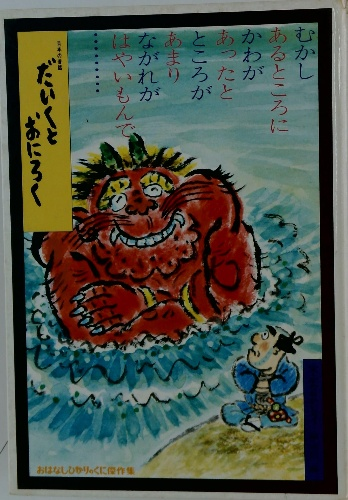 むかし
あるところに
かわが
あったと
ところが
あまり
ながれが
はやいもんで
…………
日本の昔話
だいくと
おにろく
おはなしひかりのくに傑作集